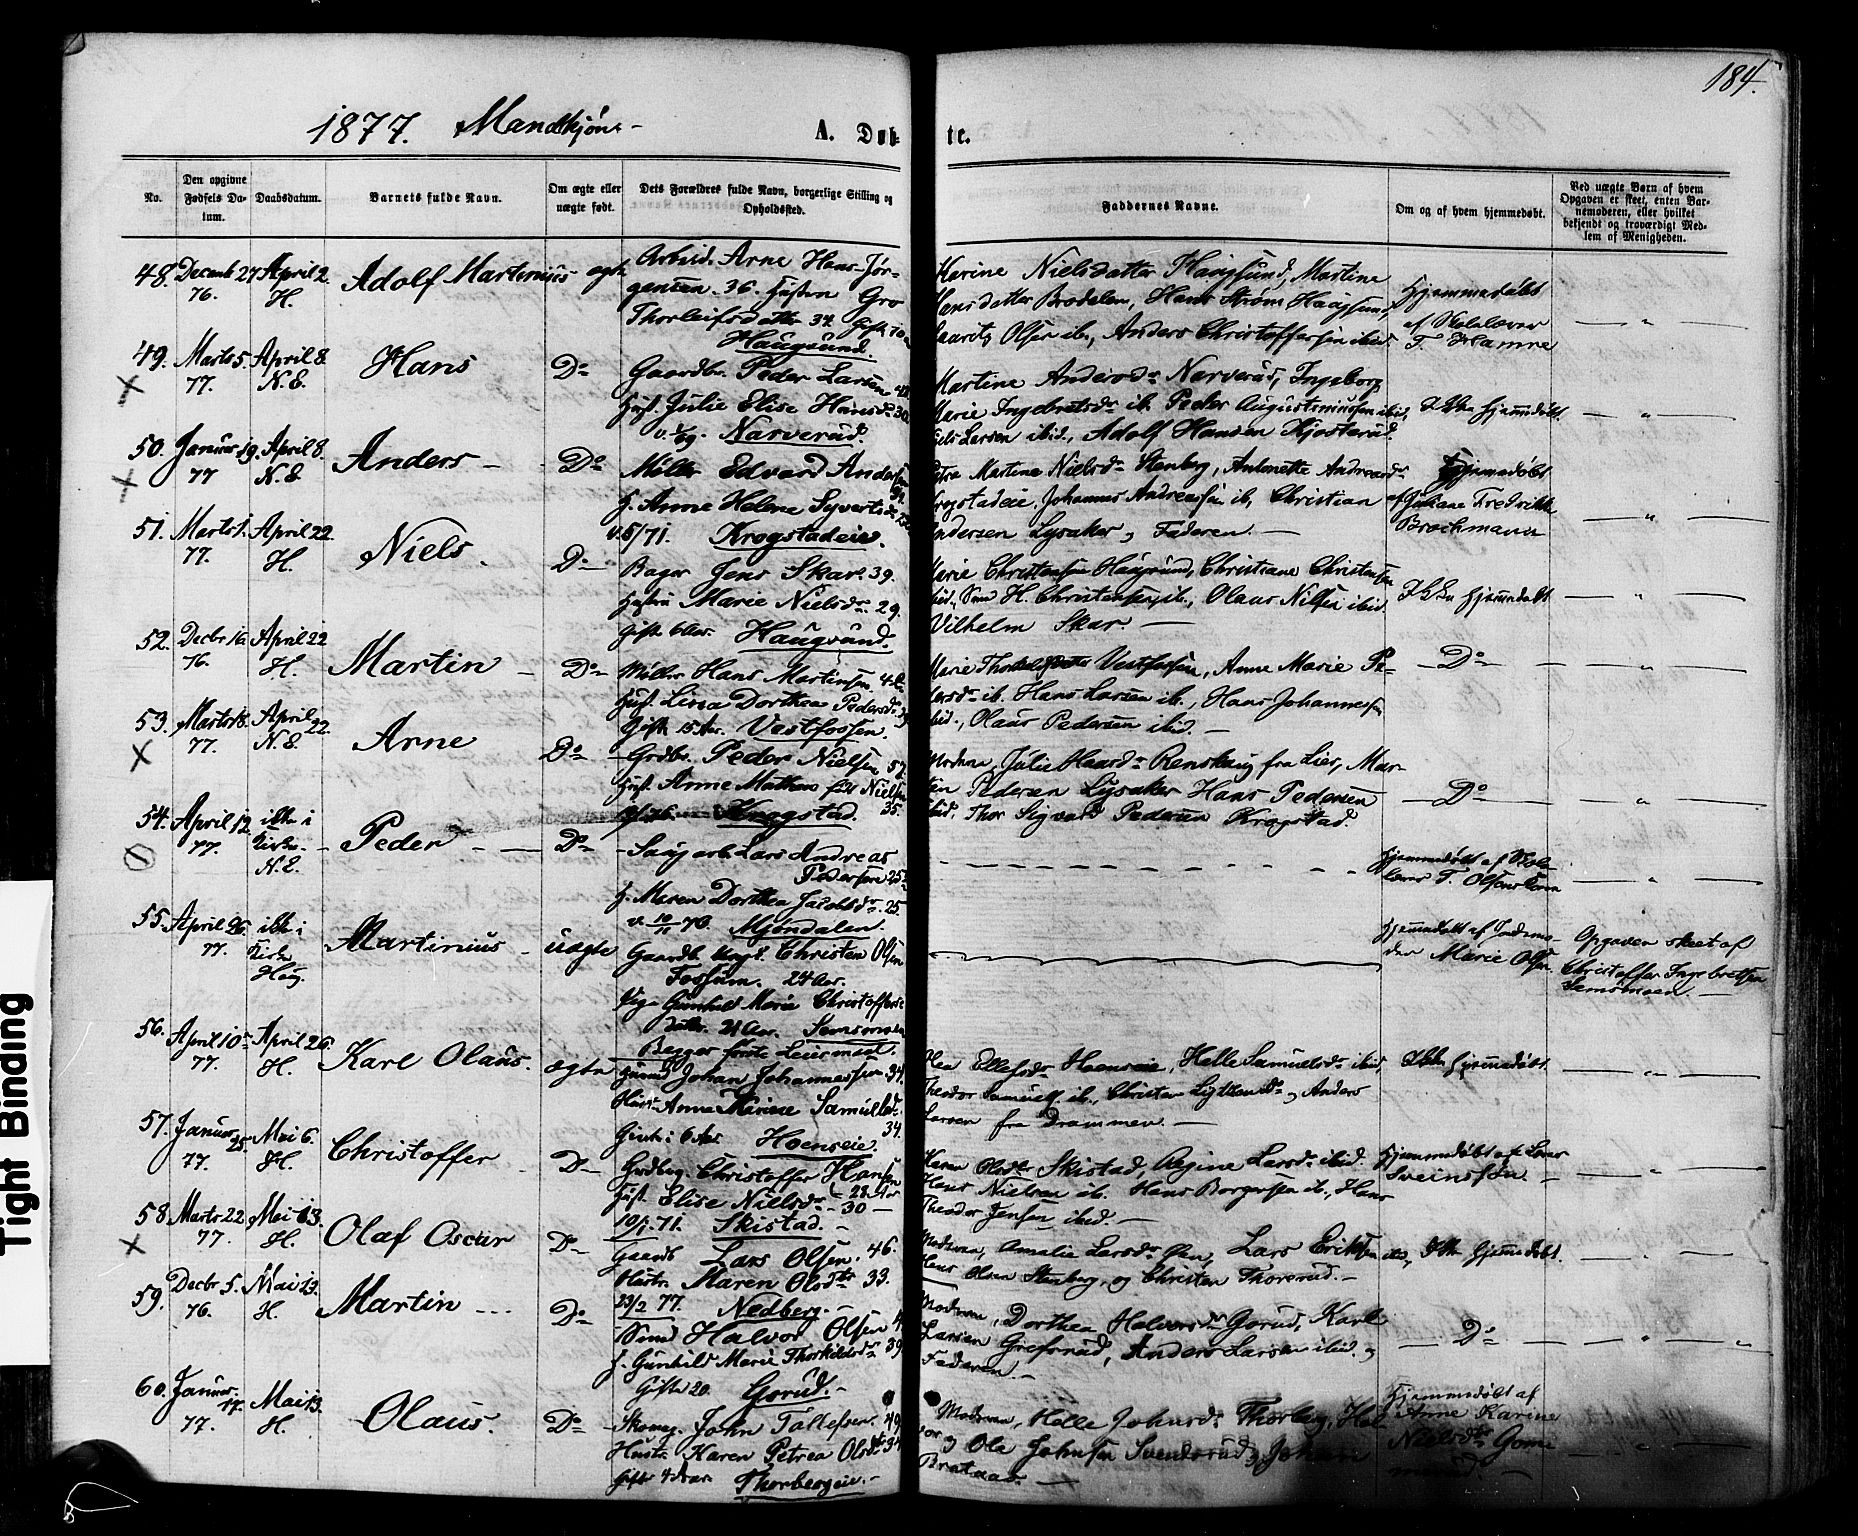 184.
1877. Mandkjøn
A. Døb-
te.
No.
Den opgivne Fødsels Datum.
Daabsdatum.
Barnets fulde Navn.
Om ægte eller uægte født.
Dets Forældres fulde Navn, borgerlige Stilling og Opholdssted.
Faddernes Navne.
Om og af hvem hjemmedøbt.
Ved uægte Børn af hvem Opgaven er skeet, enten Barnemoderen, eller hvilket bekjendt og troværdigt Medlem af Menigheden.
48. Decemb 27 76. April 2. H. Adolf Martinius ægte
Arbeid. Arne Hans Jør-
gensen. 36. Hustru Gro
Thorleifsdatter 34. Gift 10
Haugsund.
Nielsdatter Haugsund, Martine
Brodalen, Hans Strøm Haugsund
Olsen ib., Anders Christoffersen ibid.
Hjemmedøbt
af Skolelærer
T. Hamre
49. Marts 5. 77. April 8. N.E. Hans Do
Gaardbr. Peder Larsen
Hust. Julie Elise Hansdr 30
Narverud
Martine Andersdr Narverud, Ingeborg
Marie Ingebretsdr ib. Peder Augustinussen ibid,
Larsen ibid., Adolf Hansen Kjosterud.
Ikke hjemmedøbt
50. Januar 19. 77 April 8. N.E. Anders Do
Møller Edvard Andersen
H. Anne Helene Syvertsdr
5/71. Krogstadeie.
Martine Nielsdr Stenberg, Antonette Andreasdr
Krogstadeie, Johannes Andreassen ib, Christian
Andersen Lysaker og Faderen.
Hjemmedøbt
af Juliane Fredrikke
Brochmann
51. Marts 1. 77. April 22 H. Niels. Do
Bager Jens Skar. 39.
Hustru Marie Nielsdr. 29.
Gift 6 Aar. Haugsund.
Marie Christensen Haugsund, Christiane Christensen
H. Christensen, ib., Olaus Nilsen ibid.
Vilhelm Skar.
Ikke hjemmedøbt
52. Decbr 16. 76. April 22 H. Martin Do
Møller Hans Martinsen
Hust. Lissa Dorthea Pedersdr
Gift 15 Aar. Vestfossen.
Marie Vestfossen, Anne Marie Pe-
dersdr ib. Hans Larsen ib., Hans Johannessen
ibid., Olaus Pedersen ibid.
Do
53. Marts 18. 77. April 22. N.E. Arne Do
Grdbr. Peder Nielsen 52.
Hust. Anne Mathea Nielsen
35.
Krogstad.
Moderen, Julie Renskaug fra Lier, Mar-
tin Pedersen Lysaker Hans Pedersen
ibid, Thor Sigvard Pedersen Krogstad.
Do
54. April 12. 77. ikke i Kirke. N.E. Peder Do
Saugarb. Lars Andreas
Pedersen 25
H. Maren Dorthea Jacobsdr. 25.
v. 10/11 76. Mjøndalen.
Hjemmedøbt af Skole-
lærer T. Olsen
55. April 26. 77. ikke i Kirke Haug. Martinius uægte
Gaardb. Ungk. Christen Olsen
Fossum. 24 Aar.
Pige Gunhild Marie Christoffers-
datter. 21 Aar. Semsmoen
Begges første Leiermaal.
Hjemmedøbt af Jordmo-
der Marie Olsen.
Opgaven skeet af
Christoffer Ingebretsen
Semsmoen.
56. April 10 77. April 26. H. Karl Olaus. ægte
Huusmd Johan Johannessen 34.
Hustr. Anne Samuelsd.
34.
Gift i 6 Aar. Hoenseie.
Ellefsdr Hoenseie, Helle Samuelsdr ibid,
Theodor Samuels. ib., Christen og Anders
Larsen fra Drammen.
Ikke hjemmedøbt
57. Januar 25. 77. Mai 6. H. Christoffer Do
Grdbrg. Christoffer Hansen
Hust. Elise Nielsdr. 28 Aar
30
71. Skistad.
Karen Olsdtr Skistad, Regine Larsdr ibid.
Hans Nielsen ib. Hans Borgersen ib., Hans
Theodor Jensen ibid.
Hjemmedøbt af Lars
Sveinssøn.
58 Marts 22. 77. Mai 13. H. Olaf Oscar Do
Gaardb Lars Olsen. 46.
Hustr. Maren Olsdtr 33.
23/2 77. Nedberg.
Moderen, Amalie Larsdr Øen, Lars Eriksen
Hans Olsen Stenberg, og Christen Thorsrud.
Ikke hjemmedøbt.
59. Decbr 5. 76. Mai 13. H. Martin Do
Smed Halvor Olsen
H. Gunhild Marie Thorkildsdr 39
Gifte 20. Gorud.
Moderen, Dorthea Halvorsdr Gorud, Karl
Larsen Grefsrud, Anders Larsen ibid. og
Faderen.
Do
60. Januar 17. 77. Mai 13. H. Olaus. Do
Skomg. John Tollefsen. 49
Hustr. Karen Petrea Olsdtr 34
Gift 4 Aar. Thorbergeie.
Moderen, Helle Johnsdr Thorberg,
og Ole Johnsen Svendsrud, Johan
Brataas.
Hjemmedøbt af
Anne Karine
Nielsdtr
Tight Binding